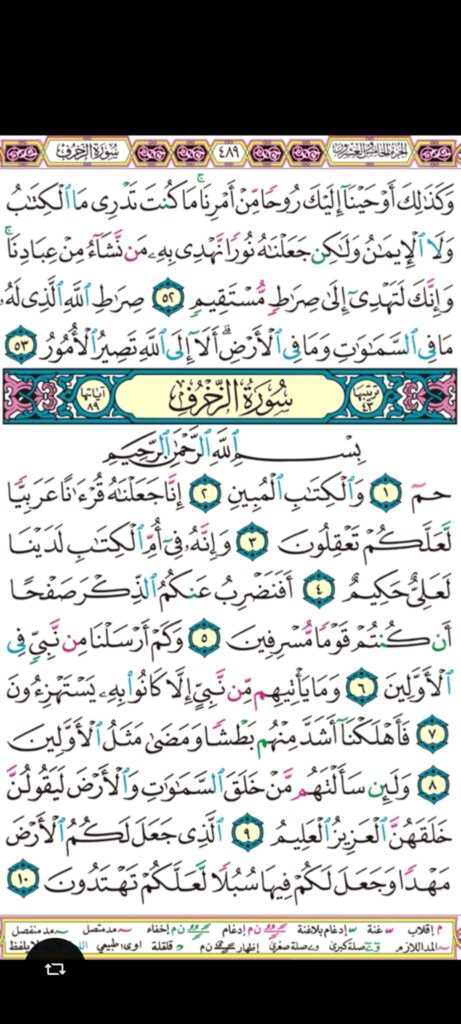 الجزء الخامس والعشرون ٤٨٩ سورة الزخرف
وَكَذَٰلِكَ أَوْحَيْنَآ إِلَيْكَ رُوحًا مِّنْ أَمْرِنَا ۚ مَا كُنتَ تَدْرِى مَا ٱلْكِتَٰبُ
وَلَا ٱلْإِيمَٰنُ وَلَٰكِن جَعَلْنَٰهُ نُورًا نَّهْدِى بِهِۦ مَن نَّشَآءُ مِنْ عِبَادِنَا ۚ
وَإِنَّكَ لَتَهْدِىٓ إِلَىٰ صِرَٰطٍ مُّسْتَقِيمٍ ٥٢ صِرَٰطِ ٱللَّهِ ٱلَّذِى لَهُۥ
مَا فِى ٱلسَّمَٰوَٰتِ وَمَا فِى ٱلْأَرْضِ ۗ أَلَآ إِلَى ٱللَّهِ تَصِيرُ ٱلْأُمُورُ ٥٣
ترتيبها ٤٣ سُورَةُ الزُّخْرُفِ آياتها ٨٩
بِسْمِ ٱللَّهِ ٱلرَّحْمَٰنِ ٱلرَّحِيمِ
حمٓ ١ وَٱلْكِتَٰبِ ٱلْمُبِينِ ٢ إِنَّا جَعَلْنَٰهُ قُرْءَٰنًا عَرَبِيًّا
لَّعَلَّكُمْ تَعْقِلُونَ ٣ وَإِنَّهُۥ فِىٓ أُمِّ ٱلْكِتَٰبِ لَدَيْنَا
لَعَلِىٌّ حَكِيمٌ ٤ أَفَنَضْرِبُ عَنكُمُ ٱلذِّكْرَ صَفْحًا
أَن كُنتُمْ قَوْمًا مُّسْرِفِينَ ٥ وَكَمْ أَرْسَلْنَا مِن نَّبِىٍّ فِى
ٱلْأَوَّلِينَ ٦ وَمَا يَأْتِيهِم مِّن نَّبِىٍّ إِلَّا كَانُوا۟ بِهِۦ يَسْتَهْزِءُونَ
٧ فَأَهْلَكْنَآ أَشَدَّ مِنْهُم بَطْشًا وَمَضَىٰ مَثَلُ ٱلْأَوَّلِينَ
٨ وَلَئِن سَأَلْتَهُم مَّنْ خَلَقَ ٱلسَّمَٰوَٰتِ وَٱلْأَرْضَ لَيَقُولُنَّ
خَلَقَهُنَّ ٱلْعَزِيزُ ٱلْعَلِيمُ ٩ ٱلَّذِى جَعَلَ لَكُمُ ٱلْأَرْضَ
مَهْدًا وَجَعَلَ لَكُمْ فِيهَا سُبُلًا لَّعَلَّكُمْ تَهْتَدُونَ ١٠
م إقلاب غنة إدغام بلاغنة ن م إدغام ن م إخفاء مد متصل مد منفصل
المد اللازم صلة كبرى صلة صغرى إظهار ن م قلقلة اوى: طبيعي لا يلفظ